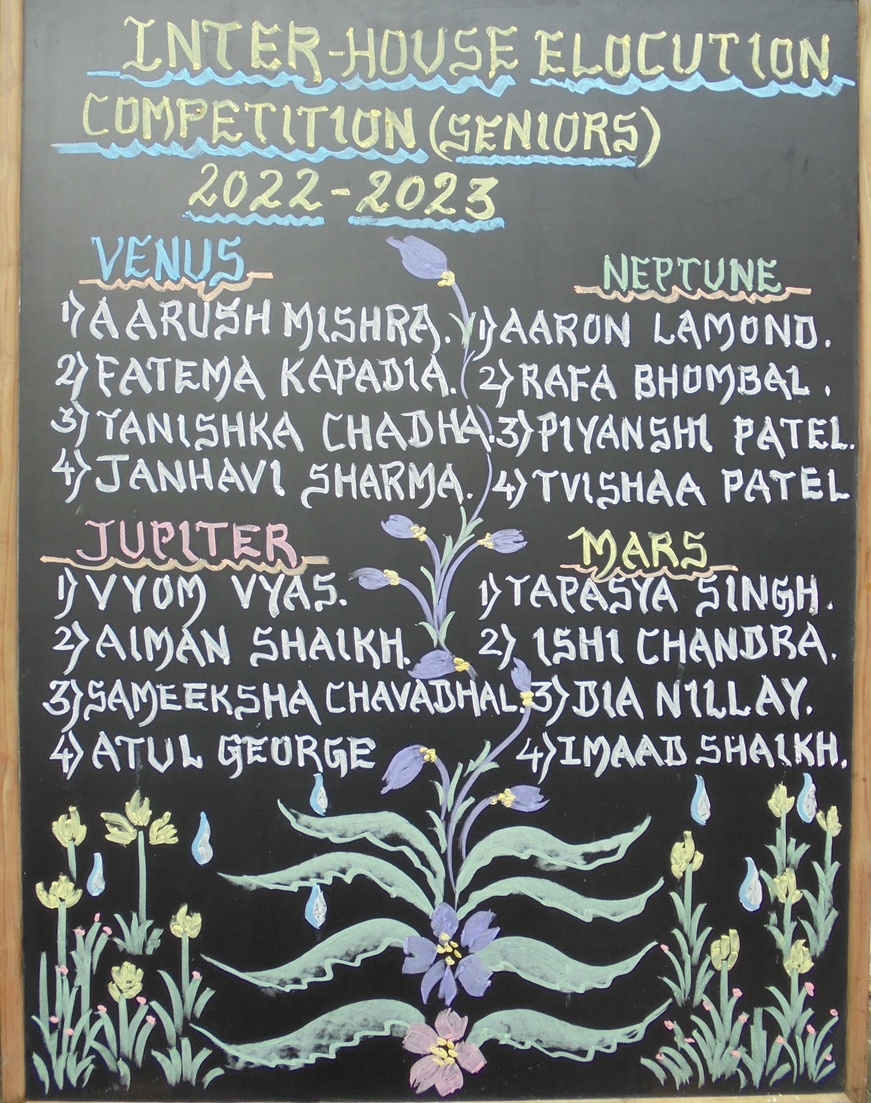 INTER-HOUSE ELOCUTION
COMPETITION (SENIORS)
2022-2023
VENUS
1) AARUSH MISHRA.
2) FATEMA KAPADIA.
3) TANISHKA CHADHA.
4) JANHAVI SHARMA.
NEPTUNE
1) AARON LAMOND.
2) RAFA BHOMBAL.
3) PIYANSHI PATEL.
4) TVISHAA PATEL
JUPITER
1) VYOM VYAS.
2) AIMAN SHAIKH.
3) SAMEEKSHA CHAVADHAL
4) ATUL GEORGE
MARS
1) TAPASYA SINGH.
2) ISHI CHANDRA.
3) DIA NILLAY.
4) IMAAD SHAIKH.